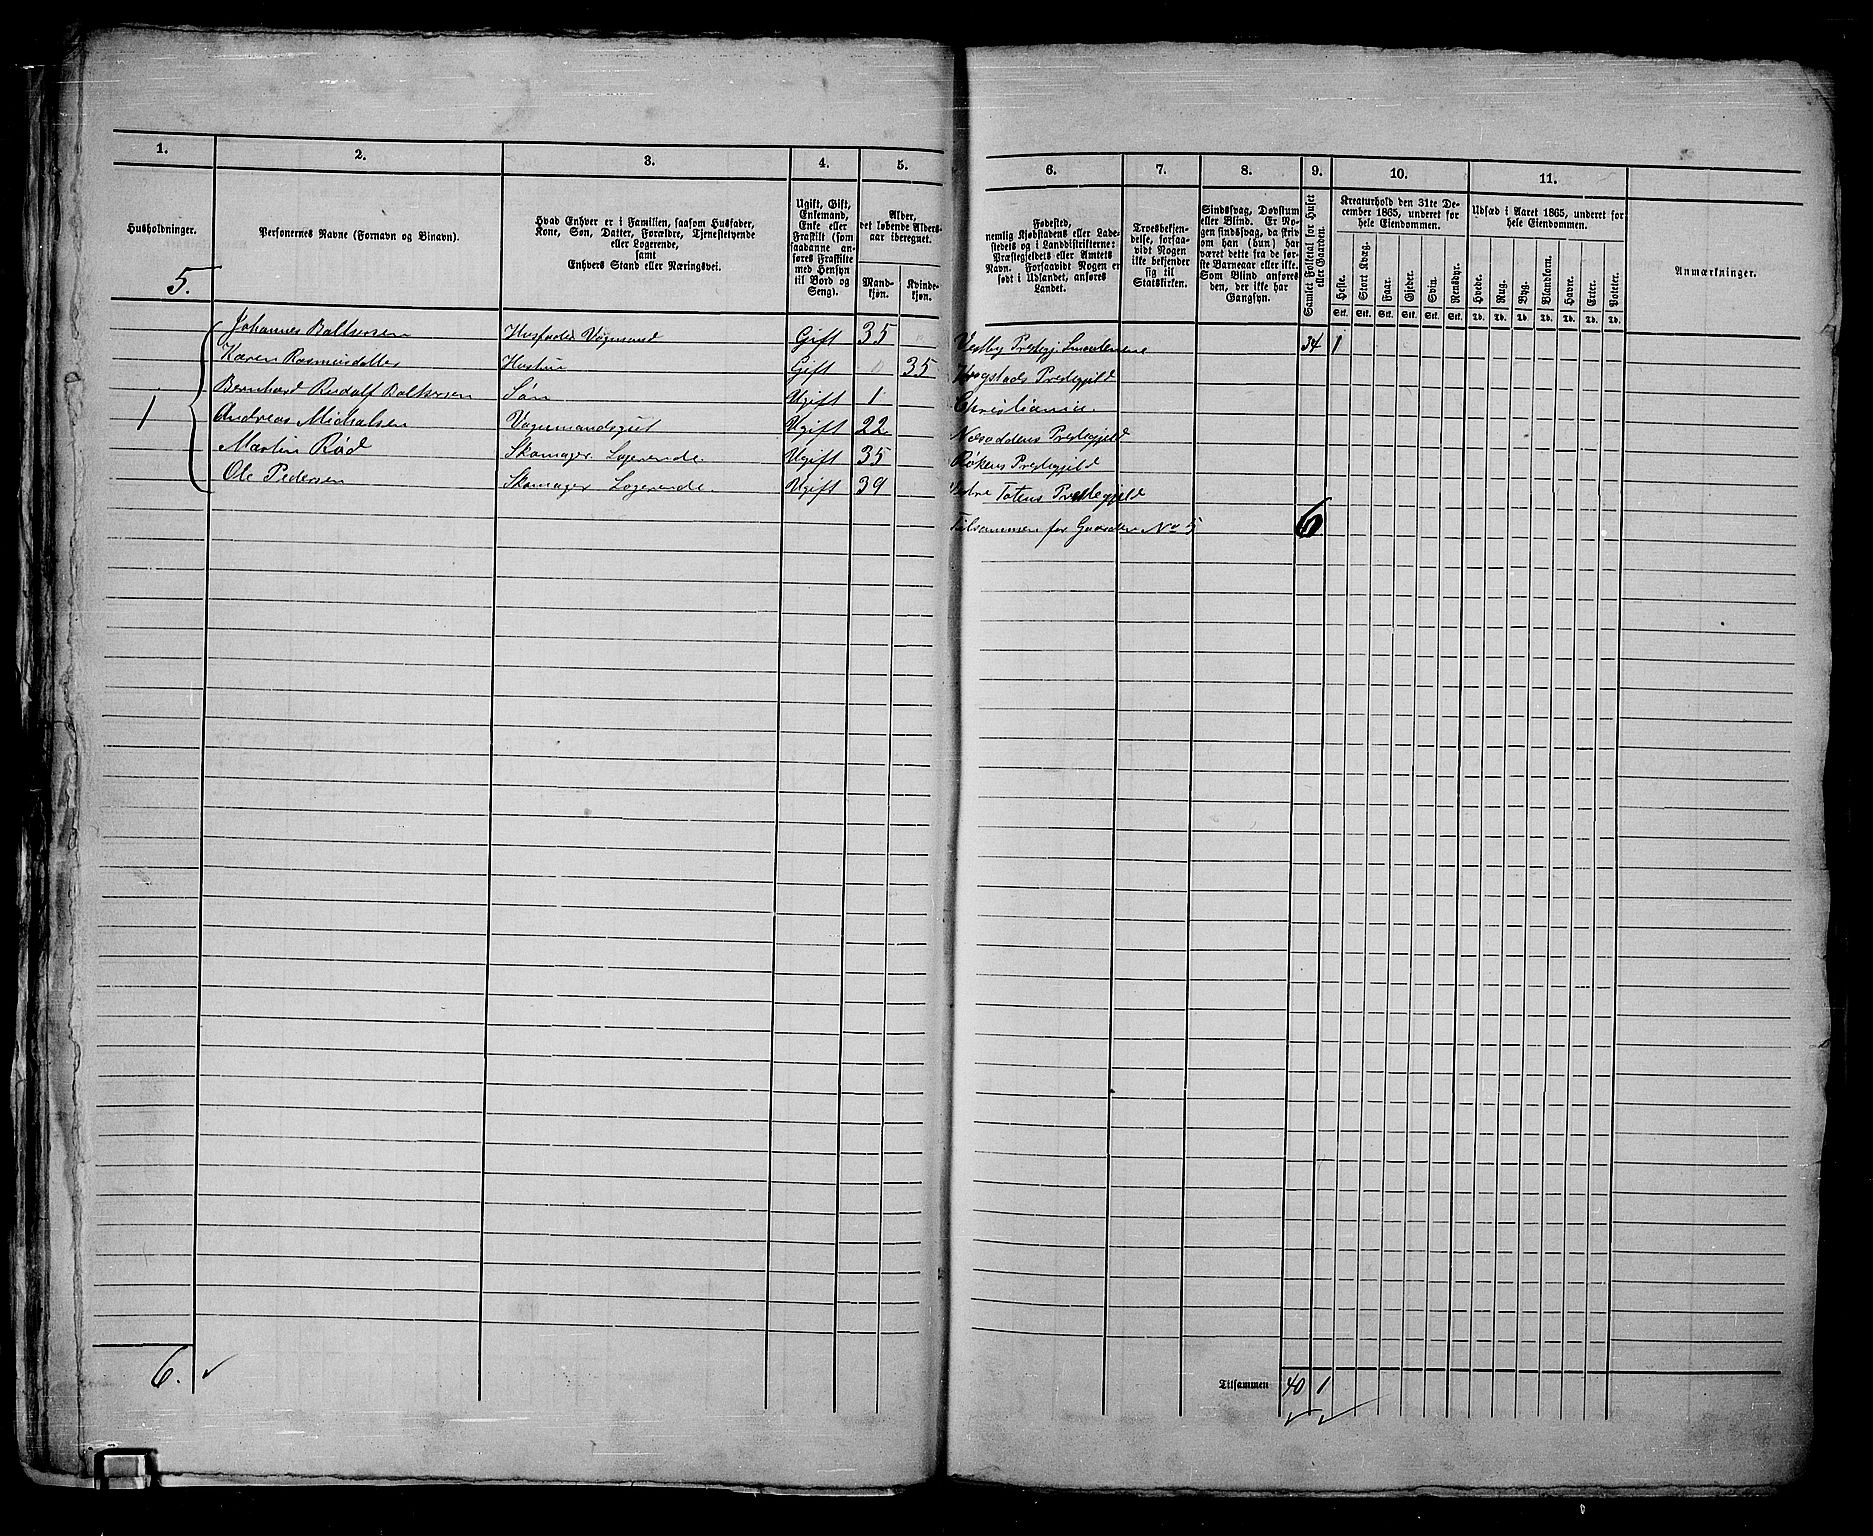 1.
2.
3.
4.
5.
6.
7.
8.
9.
10.
11.
Husholdninger.
Personernes Navne (Fornavn og Binavn).
Hvad Enhver er i Familien, saasom Husfader,
Kone, Søn, Datter, Forældre, Tjenestetyende
eller Logerende,
samt
Enhvers Stand eller Næringsvei.
Ugift, Gift,
Enkemand,
Enke eller
Fraskilt (som
saadanne an-
føres Fraskilte
med Hensyn
til Bord og
Seng).
Alder,
det løbende Alders-
aar iberegnet.
Mand-
kjøn.
Kvinde-
kjøn.
Fødested,
nemlig Kjøbstadens eller Lade-
stedets og i Landdistrikterne:
Præstegjeldets eller Amtets
Navn. Forsaavidt Nogen er
født i Udlandet, anføres
Landet.
Troesbekjen-
delse, forsaa-
vidt Nogen
ikke bekjender
sig til
Statskirken.
Sindssvag, Døvstum
eller Blind. Er No-
gen sindssvag, da skriv
om han (hun) har
været dette fra de før-
ste Barneaar eller ikke.
Som Blind anføres
den, der ikke har
Gangsyn.
Samlet Folketal for Huset
eller Gaarden.
Kreaturhold den 31te De-
cember 1865, underet for
hele Eiendommen.
Heste.
Stort Kvæg.
Faar.
Gjeder.
Svin.
Rensdyr.
Stk. Stk. Stk. Stk. Stk. Stk.
Udsæd i Aaret 1865, underet for
hele Eiendommen.
Hvede.
Rug.
Byg.
Blandkorn.
Havre.
Erter.
Poteter.
Td. Td. Td. Td. Td. Td. Td.
Anmærkninger.
5.
Johannes Baltsersen Husfader Vognmand Gift 35 Vestby Prestegj. 34 1
Karen Rasmusdatter Hustru Gift 35 Krogstads Prestegjeld
Bernhard Rudolf Baltsersen Søn Ugift 1 Christiania.
1 Andreas Michalsen Vognmandsgut Ugift 22 Næsoddens Prestegjeld
Martin Rød Skomager. Logerende. Ugift 35 Røkens Prestegjeld
Ole Pedersen Skomager Logerende. Ugift 39 Vestre Totens Prestegjeld
Tilsammen for Gaarden No 5 6
6.
Tilsammen 40 1